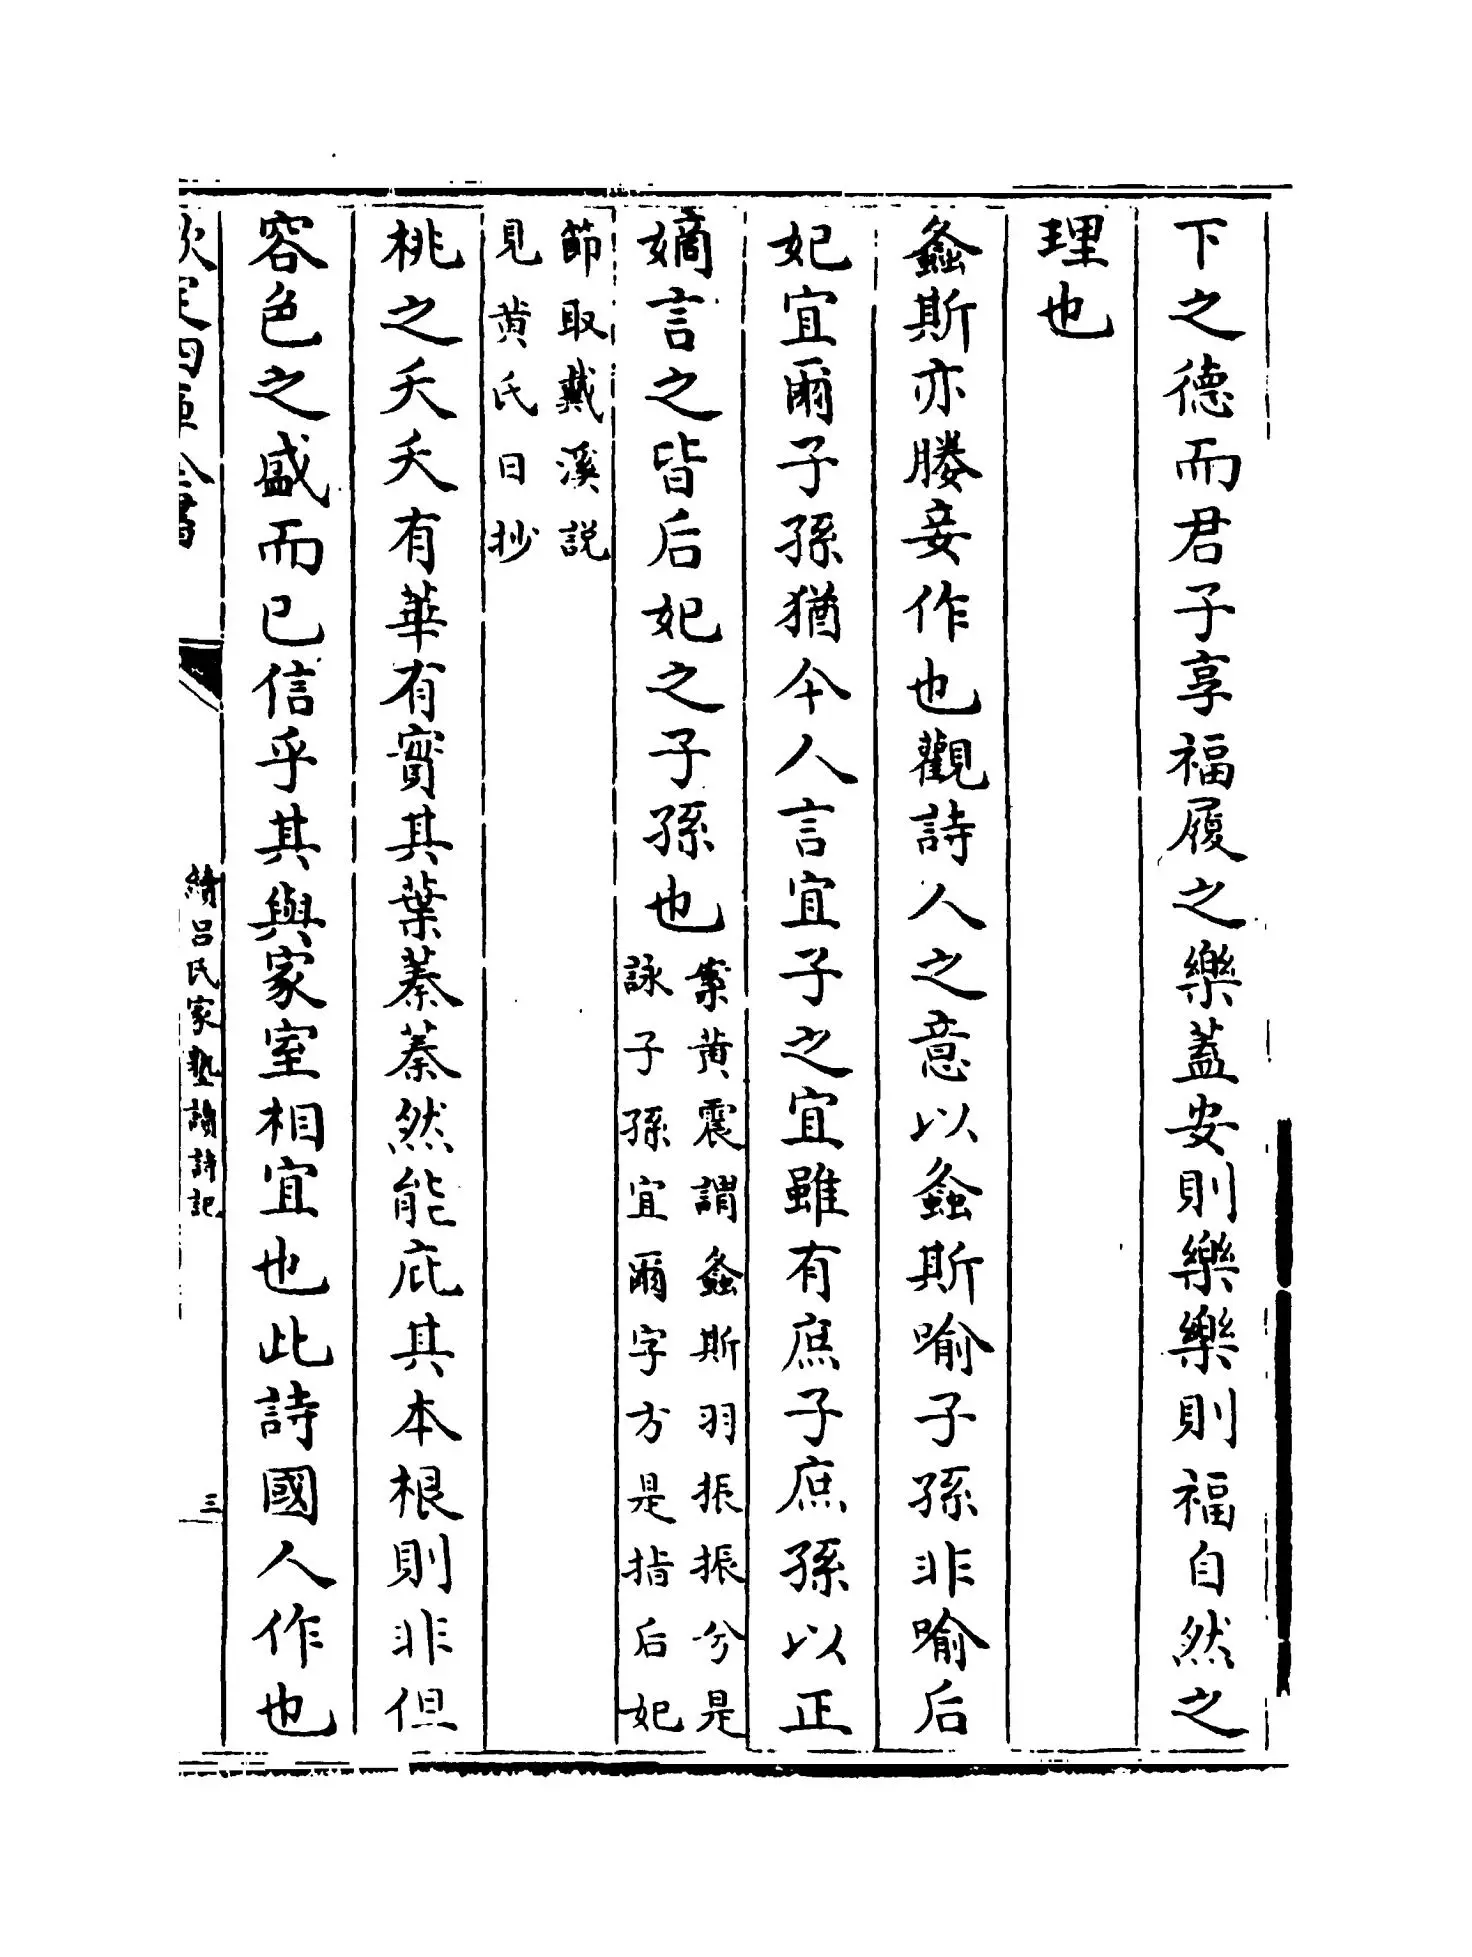 下之德而君子享福履之樂蓋安則樂樂則福自然之
理也
螽斯亦媵妾作也觀詩人之意以螽斯喻子孫非喻后
妃宜爾子孫猶今人言宜子之宜雖有庶子庶孫以正
嫡言之皆后妃之子孫也
案黄震謂螽斯羽振振兮是
詠子孫宜爾字方是指后妃
節取戴溪説
見黄氏日抄
桃之夭夭有華有實其葉蓁蓁然能庇其本根則非但
容色之盛而已信乎其與家室相宜也此詩國人作也
欽定四庫全書
續吕氏家塾讀詩記
三